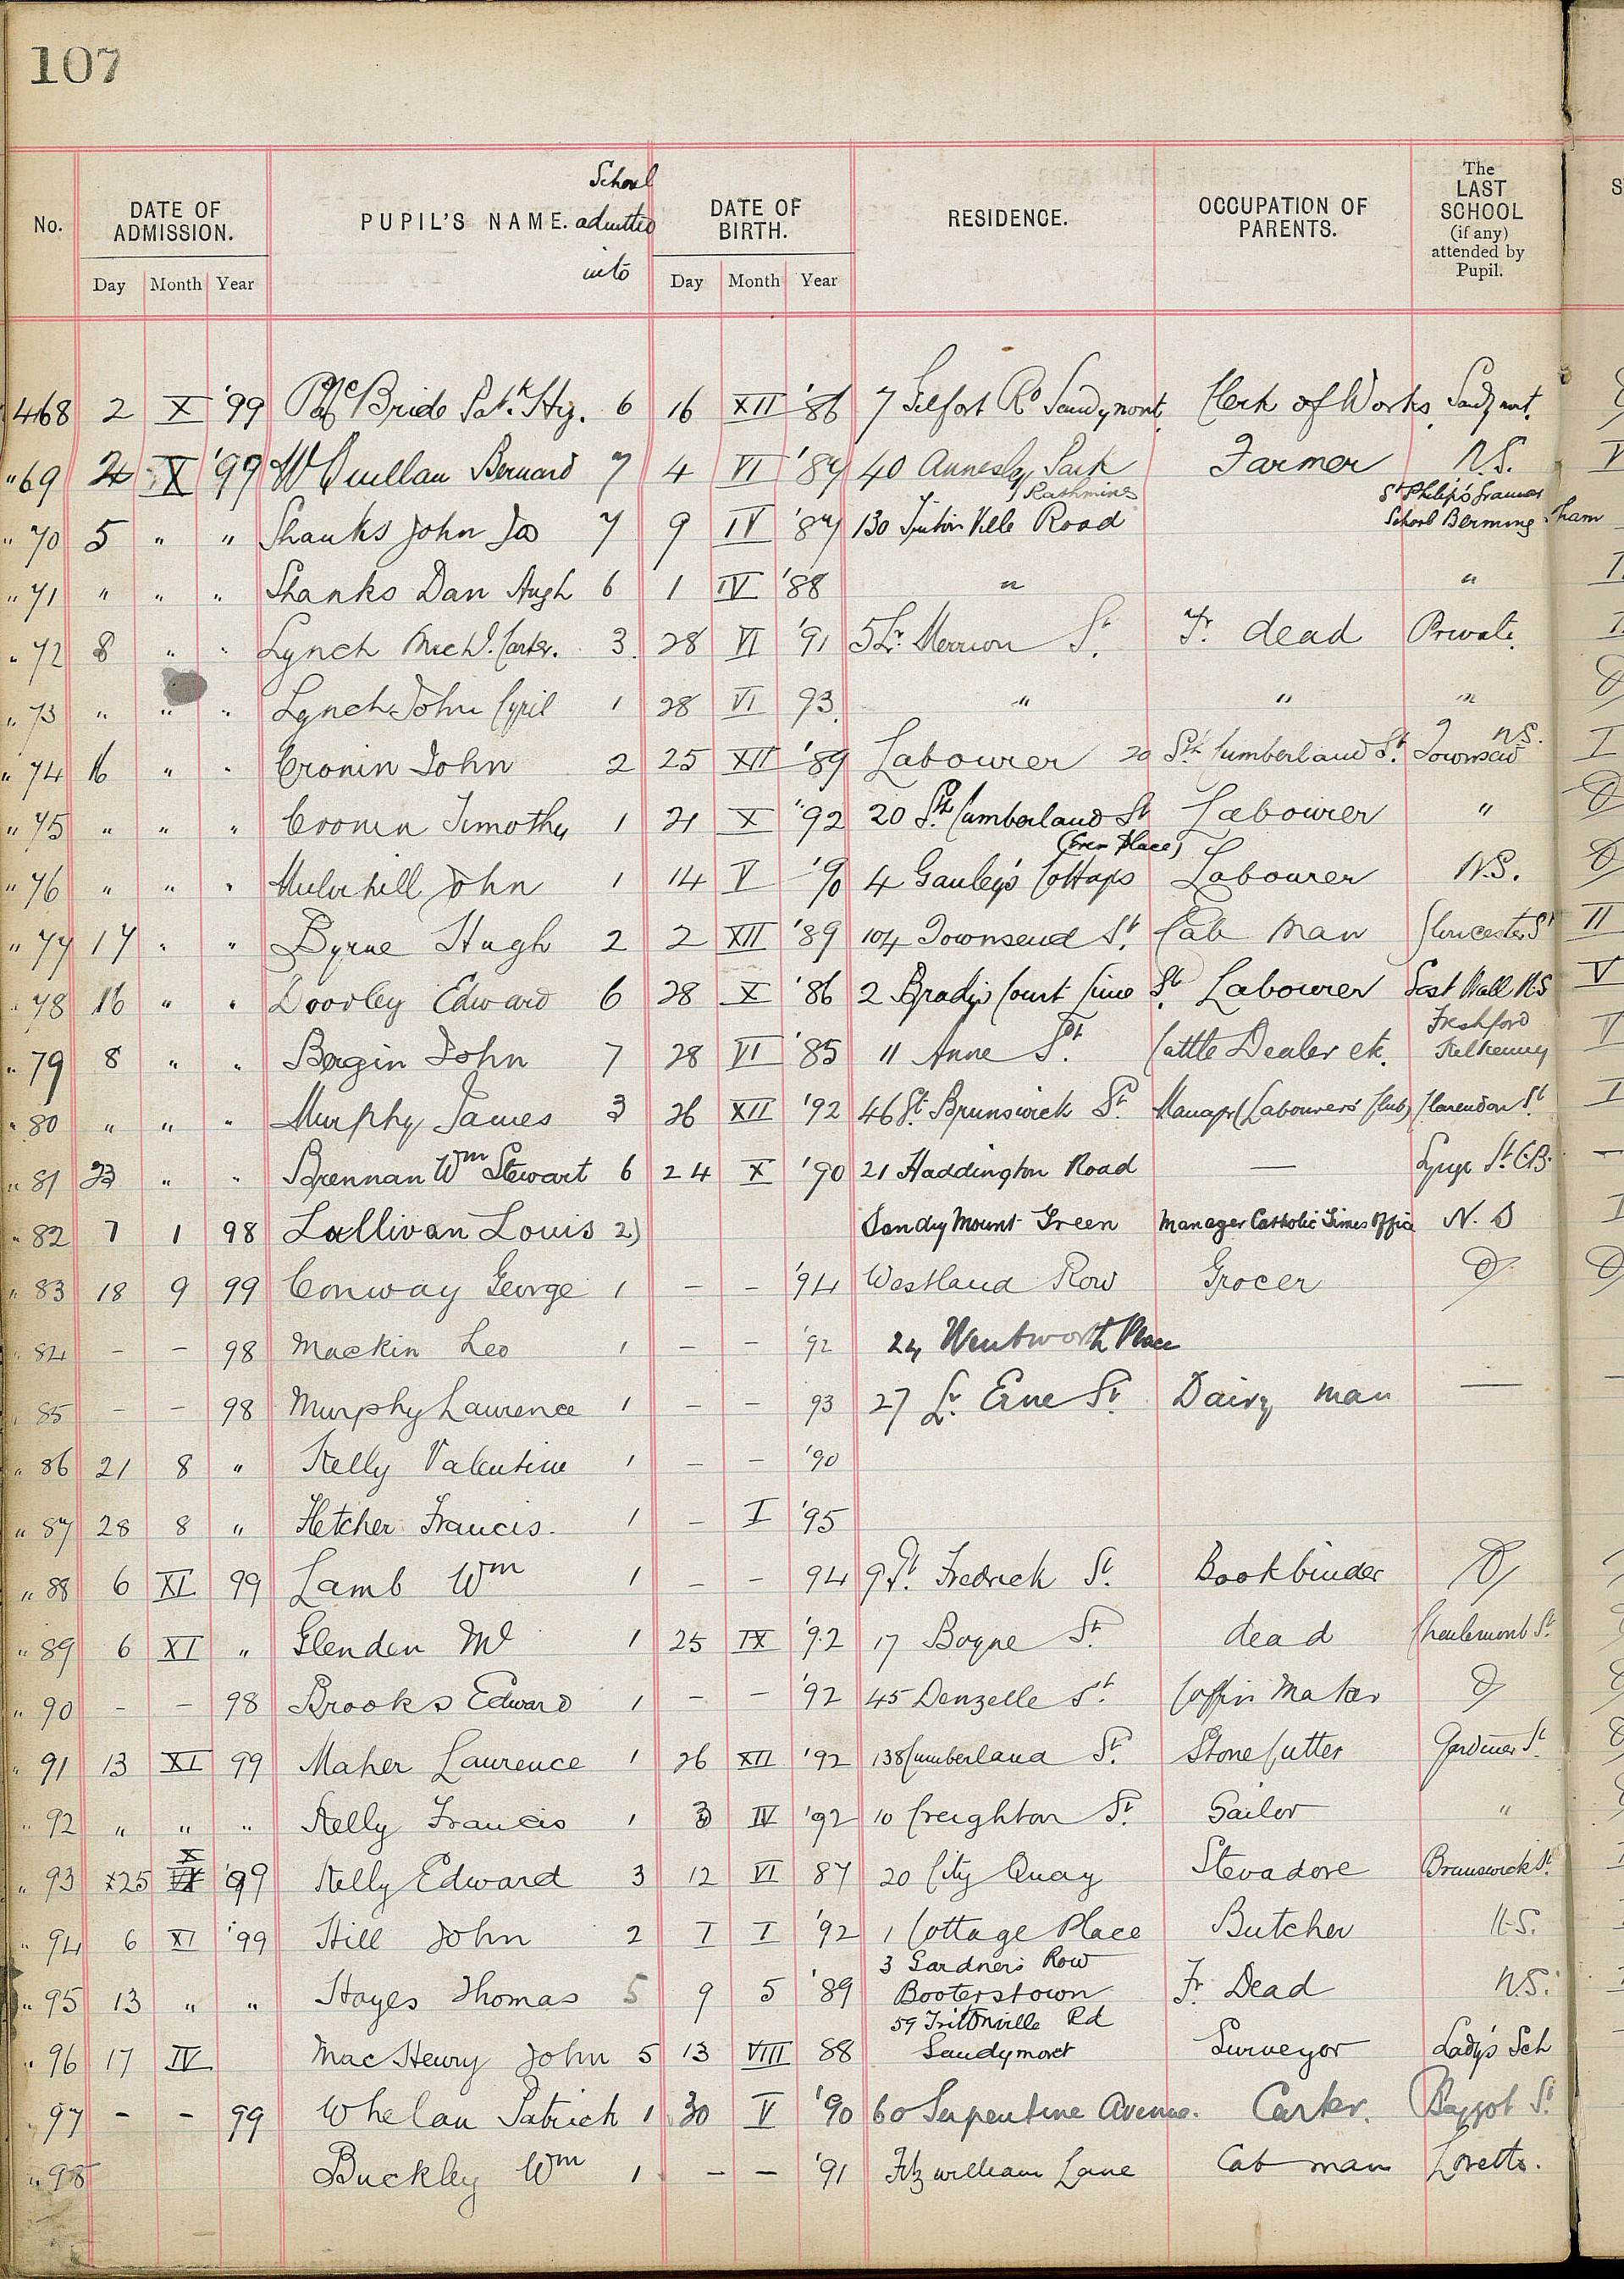 107
No. DATE OF ADMISSION. PUPIL'S NAME. School admitted into DATE OF BIRTH. RESIDENCE. OCCUPATION OF PARENTS. The LAST SCHOOL (if any) attended by Pupil.
Day Month Year Day Month Year
468 2 X '99 McBride Patk. Hy. 6 16 XII '86 7 Gilford Rd Sandymont Clerk of Works Sandymt.
"69 24 X '99 McQuillan Bernard 7 4 VI '87 40 Annesley Park Rathmines Farmer N.S.
"70 5 " " Shanks John Jas 7 9 IV '87 130 Tritonville Road St Philip's Grammar School Berming-ham
"71 " " " Shanks Dan Hugh 6 1 IV '88 " "
"72 8 " " Lynch Michl. 3 28 VI '91 5 Lr. Merrion St. Fr. dead Private.
"73 " " " Lynch John Cyril 1 28 VI 93 " " "
"74 16 " " Cronin John 2 25 XII '89 Labourer 20 Sth Cumberland St. Townsend N.S.
"75 " " " Cronin Timothy 1 21 X '92 20 Sth Cumberland St Labourer "
"76 " " " Mulvihill John 1 14 V '90 4 Gauley's Cottages (Erne Place) Labourer N.S.
"77 17 " " Byrne Hugh 2 2 XII '89 104 Townsend St. Cab man Gloucester St
"78 16 " " Doorley Edward 6 28 X '86 2 Brady's Court Lime St. Labourer East Wall N.S
"79 8 " " Bergin John 7 28 VI '85 11 Anne St. Cattle Dealer etc. Freshford Kilkenny
"80 " " " Murphy James 3 26 XII '92 46 Gt. Brunswick St. Manager (Labourers' Club) Clarendon St.
"81 23 " " Brennan Wm Stewart 6 24 X '90 21 Haddington Road — Synge St. C.B.
"82 7 1 98 Lallivan Louis 2) Sandy Mount Green Manager Catholic Times Office N. S
"83 18 9 99 Conway George 1 – – '94 Westland Row Grocer
"84 – – 98 Mackin Leo 1 – – '92 24 Wentworth Place
"85 – – 98 Murphy Laurence 1 – – 93 27 Lr. Erne St. Dairy man —
"86 21 8 " Kelly Valentine 1 – – '90
"87 28 8 " Fletcher Francis. 1 – I '95
"88 6 XI 99 Lamb Wm 1 – – 94 9 St. Fredrick St. Bookbinder
"89 6 XI " Glenden Ml 1 25 IX '92 17 Boyne St. dead
"90 – – 98 Brooks Edward 1 – – '92 45 Denzelle St. Coffin Maker
"91 13 XI 99 Maher Laurence 1 26 XII '92 138 Cumberland St. Stone Cutter Gardiner St.
"92 " " " Kelly Francis 1 3 IV '92 10 Creighton St. Sailor "
"93 25 X '99 Kelly Edward 3 12 VI 87 20 City Quay Stevadore Brunswick St.
"94 6 XI '99 Hill John 2 I I '92 1 Cottage Place Butcher N.S.
"95 13 " " Hayes Thomas 5 9 5 '89 3 Gardners Row Booterstown Fr. Dead N.S.
"96 17 IV MacHenry John 5 13 VIII 88 59 Tritonville Rd Sandymount Surveyor Lady's Sch
"97 – – 99 Whelan Patrick 1 30 V '90 60 Serpentine Avenue. Carter. Baggot St.
"98 Buckley Wm 1 – – '91 Fitzwilliam Lane Cab man Loretto.